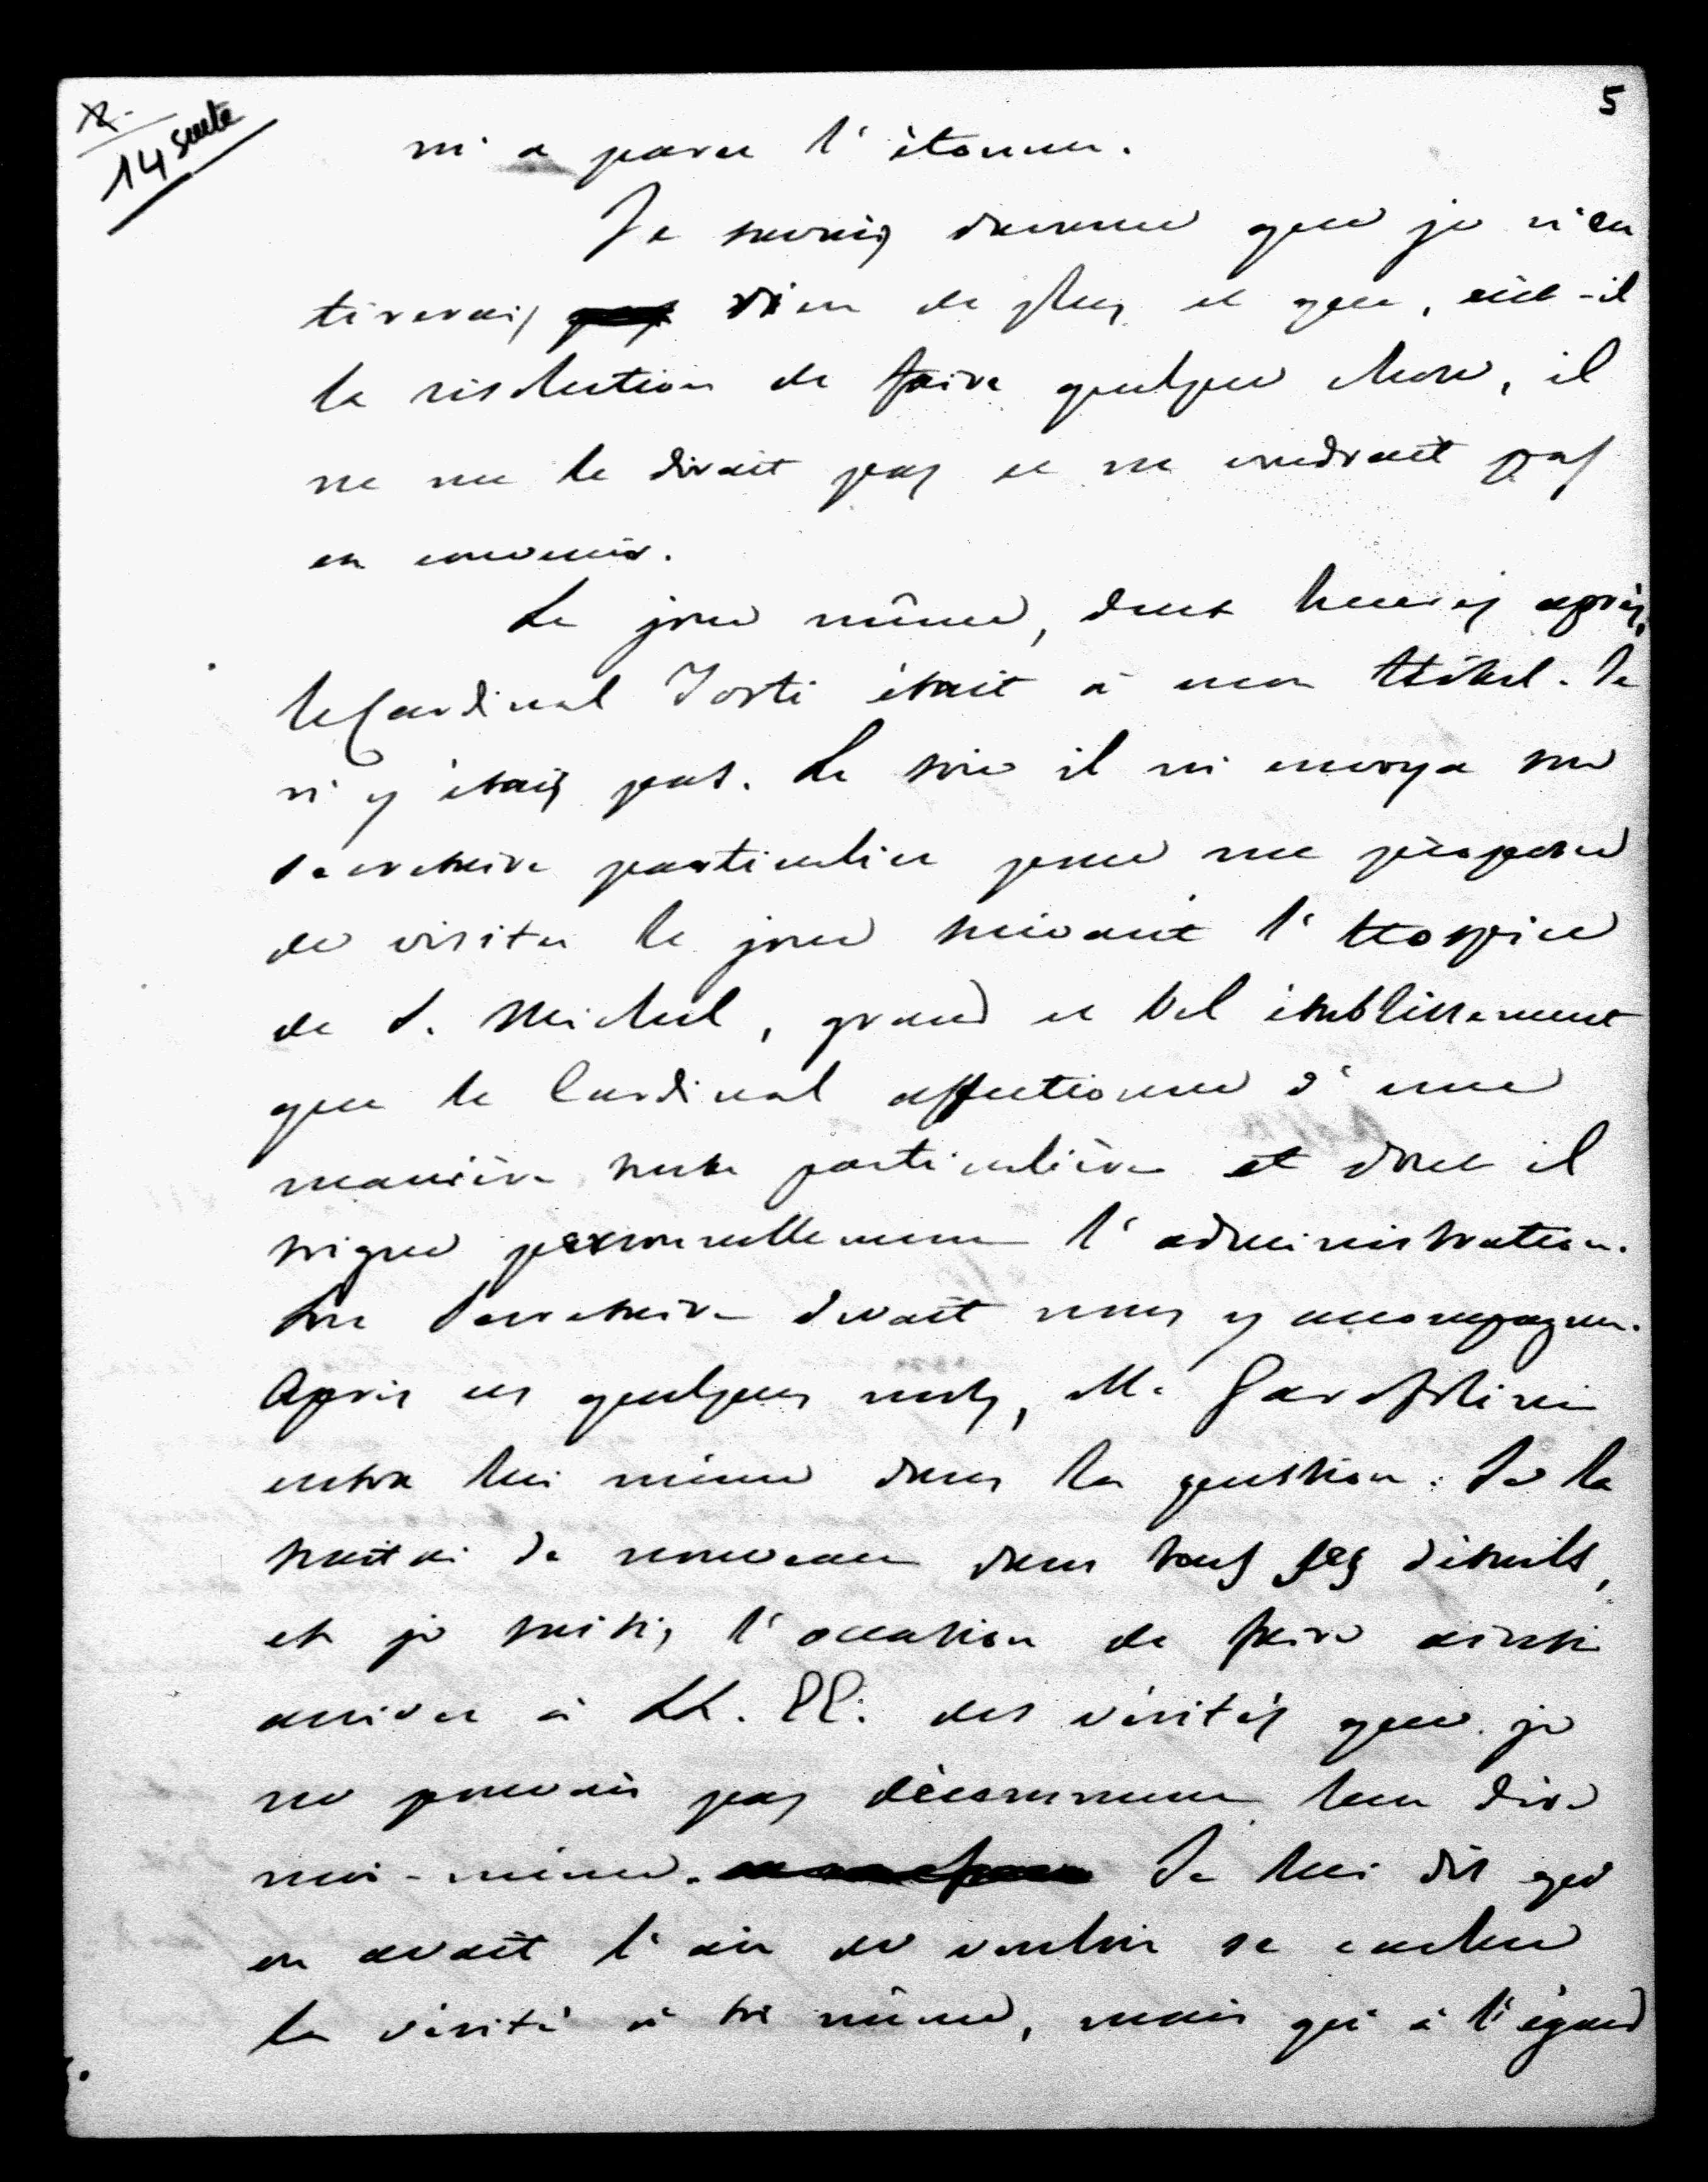 5
14 suite
m'a paru l'étonner.
Je savais d'avance que je n'en
tirerais rien de plus et que, eût-il
la résolution de faire quelque chose, il
ne me le dirait pas et ne voudrait pas
en convenir.
Le jour même, deux heures après,
le Cardinal Tosti était à mon Hôtel. Je
n'y étais pas. Le soir il m'envoya son
Secrétaire particulier pour me proposer
de visiter le jour suivant l'Hospice
de S. Michel, grand et bel établissement
que le Cardinal affectionne d'une
manière toute particulière et dont il
soigne personnellement l'administration.
Son Secrétaire devait nous y accompagner.
Après ces quelques mots, M.
entra lui même dans la question. Je la
traitai de nouveau dans tous ses détails,
et je saisis l'occasion de faire ainsi
arriver à LL. EE. des vérités que je
ne pouvais pas décemment leur dire
moi-même. Je lui dis que
on avait l'air de vouloir se cacher
la vérité à soi même, mais qu'à l'égard